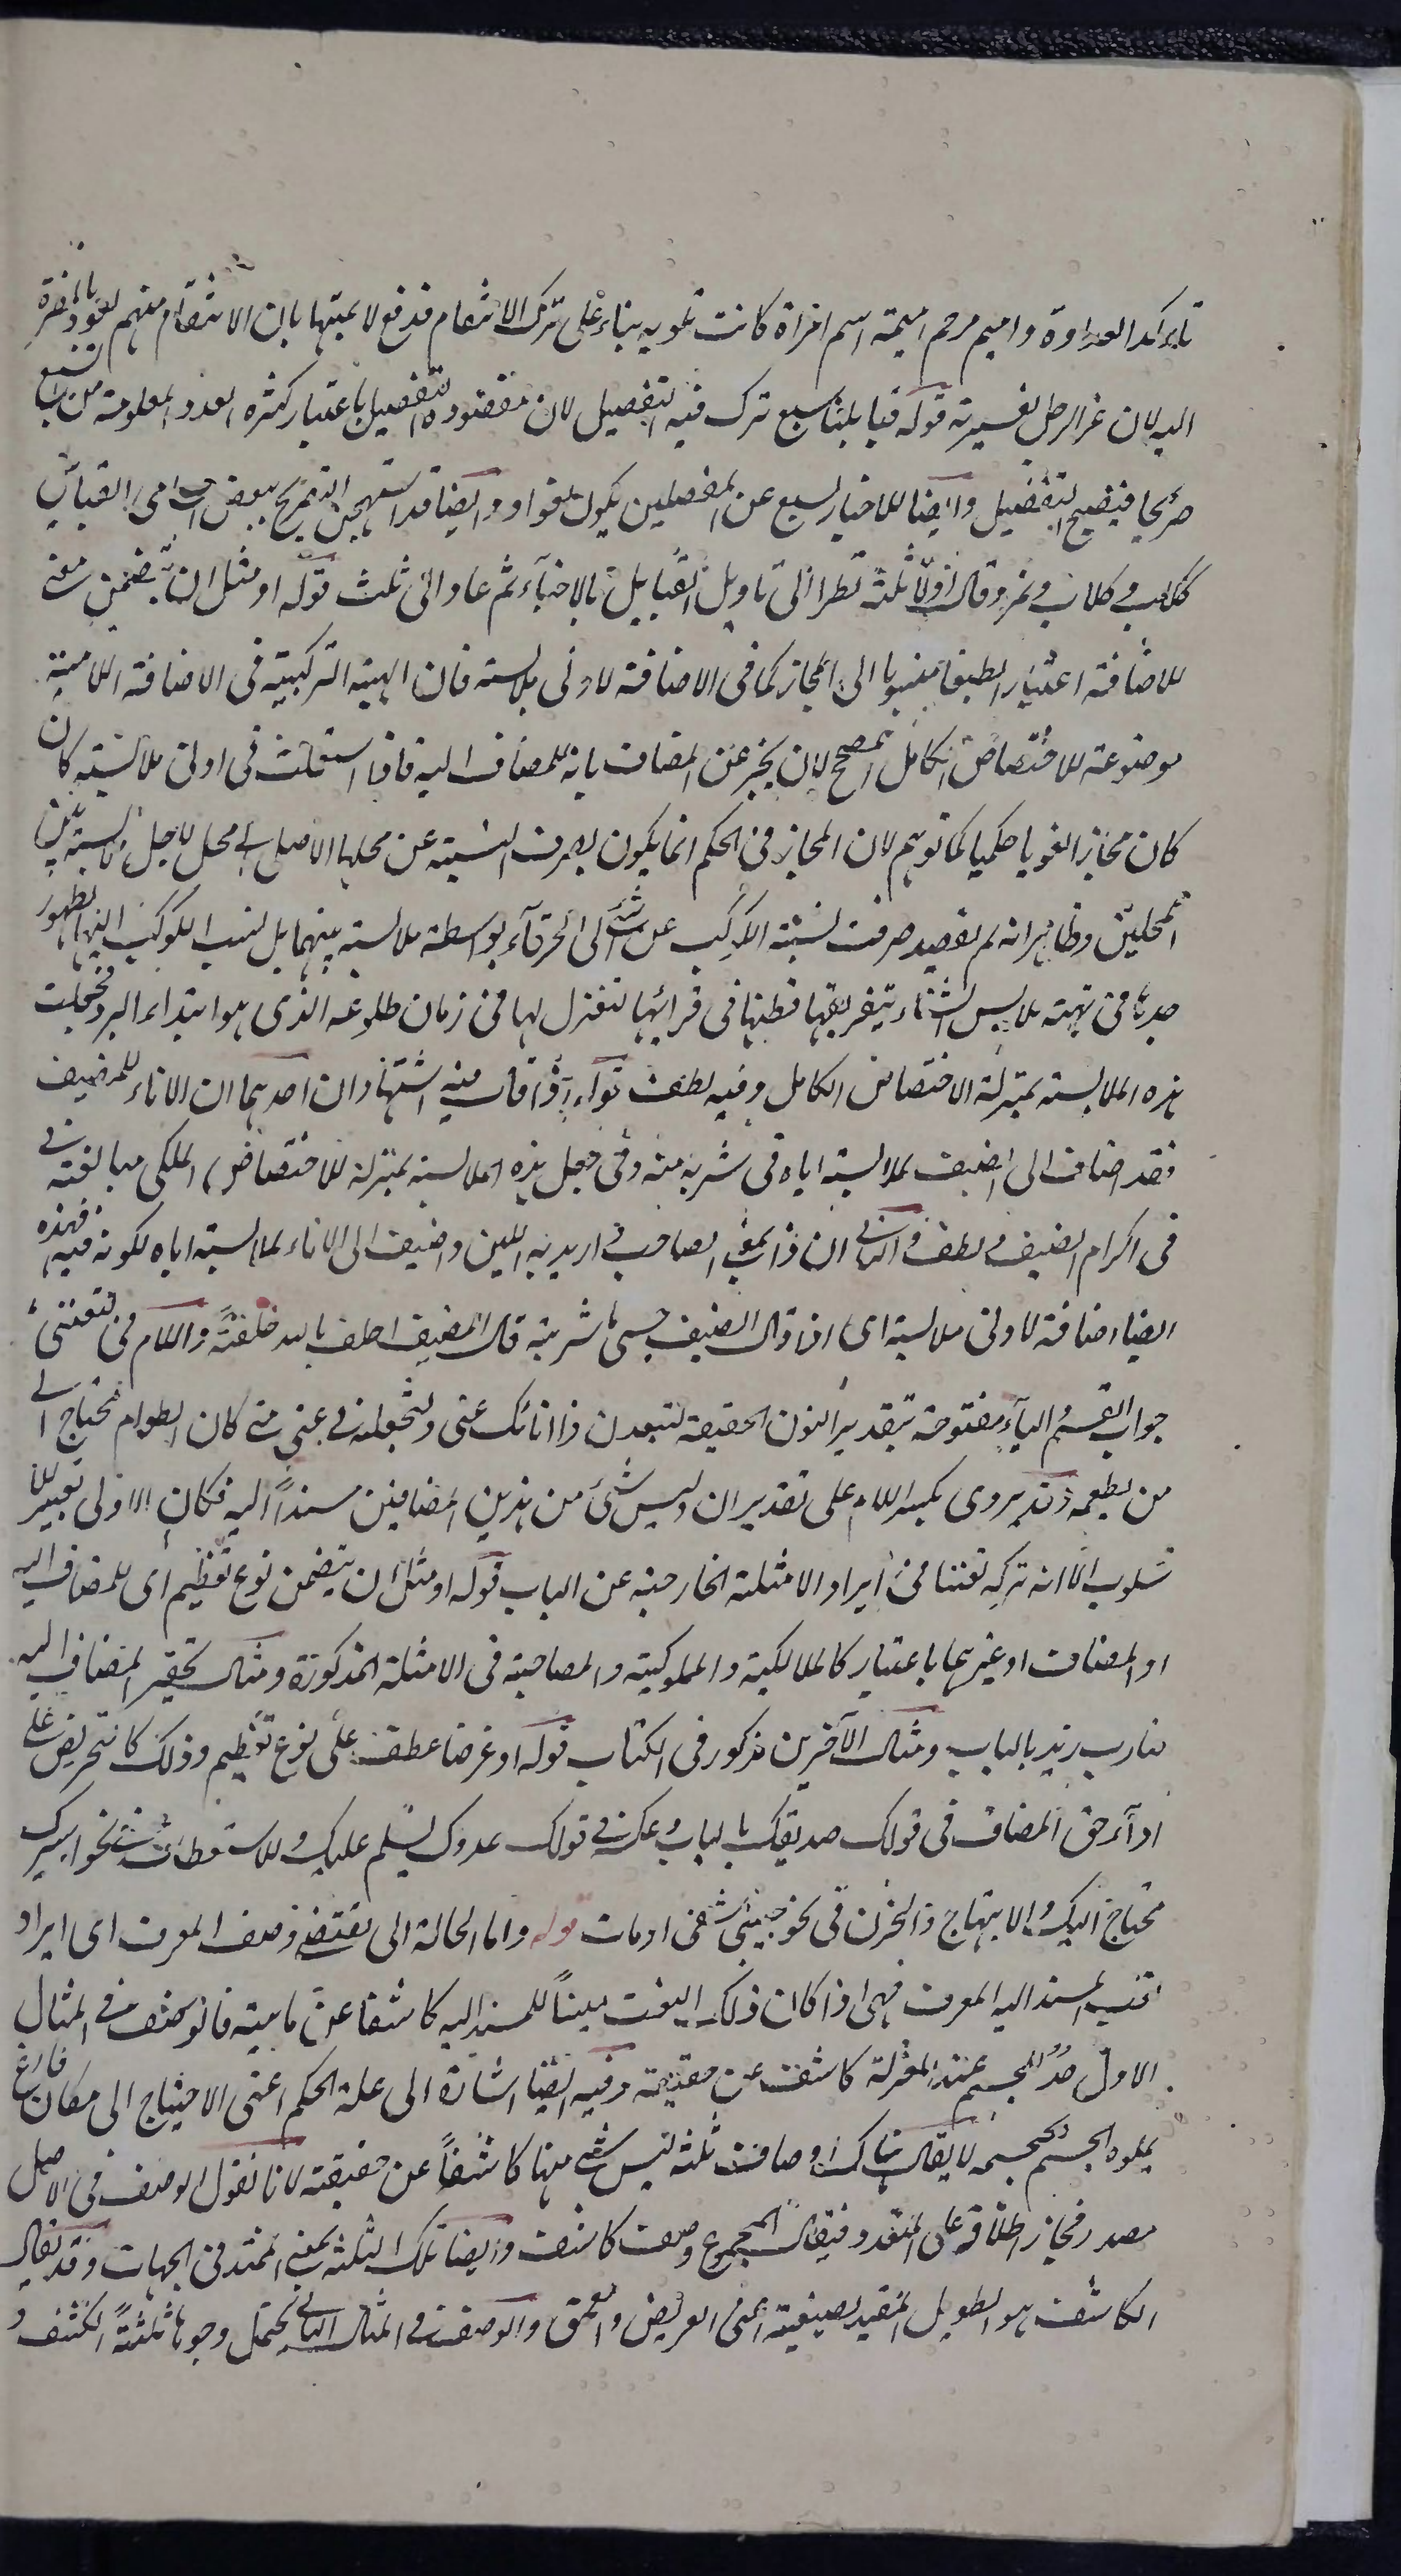 تاكد العداوة واميم مرخم اميمة اسم امراة كانت تلومه بناء على ترك الانتقام فدفع لائمتها بان الانتقام منهم يعود بالمضرة
اليه لان عز الرجل بعشيرته قوله قبايلنا سبع ترك فيه التفصيل لان مقصوده التفضيل باعتبار كثرة العدد المعلومة من السبع
صريحا فيضيع التفصيل وايضا للاخبار بسبع عن المفصلين يكون لغوا وايضا قد يستهجن التصريح ببعض اسامى القبائل
ككلب وكلاب ونمر وقال اولا ثلثة نظرا الى تاويل القبايل بالاحياء ثم عاد الى ثلث قوله او مثل ان يتضمن يعنى
للاضافة اعتبارا لطيفا منسوبا الى المجاز كما فى الاضافة لادنى ملابسة فان الهيئة التركيبية فى الاضافة اللامية
موضوعة للاختصاص الكامل المصحح لان يخبر عن المضاف بانه للمضاف اليه فاذا استعملت فى ادنى ملابسة كان
كان مجازا لغويا حكميا كما توهم لان المجاز فى الحكم انما يكون بصرف النسبة عن محلها الاصلى الى محل لاجل ملابسة بين
المحلين وظاهر انه لم يقصد صرف نسبة الكوكب عن شئ الى الخرقاء بواسطة ملابسة بينهما بل نسب الكوكب اليها لظهور
جدها فى تهيئة ملابس الشتاء بتفريقها قطنها فى قرائبها لتغزل لها فى زمان طلوعه الذى هو ابتداء البرد فجعلت
هذه الملابسة بمنزلة الاختصاص الكامل وفيه لطف قوله اذا قال فيه استشهادان احدهما ان الاناء للمضيف
فقد اضاف الى الضيف لملابسته اياه فى شربه منه وفى جعل هذه الملابسة بمنزلة للاختصاص الملكى مبالغة فى
فى اكرام الضيف ولطف والثانى ان ذا بمعنى الصاحب اريد به اللبن واضيف الى الاناء لملابسته اياه لكونه فيه فهذه
ايضا اضافة لادنى ملابسة اى اذا قال الضيف حسبى ما شربته قال المضيف احلف بالله حلفةً واللام فى لتغننى
جواب القسم الياء مفتوحة بتقدير النون الخفيفة لتبعدن ذا انائك عنى ولتجعلنه فى عنى متى كان الطعام يحتاج الى
من يطعمه وقد يروى بكسر اللام على تقدير ان وليس شئ من هذين المضافين مسنداً اليه فكان الاولى
الا انه تركه تفننا فى ايراد الامثلة الخارجة عن الباب قوله او مثل ان يتضمن نوع تعظيم اى للمضاف اليه
او المضاف او غيرهما باعتبار كالمالكية والمملوكية والمصاحبة فى الامثلة المذكورة ومثال تحقير المضاف اليه
ضارب زيد بالباب ومثال الآخرين مذكور فى الكتاب قوله او غرضا عطف على نوع تعظيم وذلك كالتحريض على
اداء حق المضاف فى قولك صديقك بالباب وعكسه فى قولك عدوك يسلم عليك والاستعطاف نحو اسيرك
محتاج اليك والابتهاج والحزن فى نحو حبيبى شفى او مات قوله واما الحالة التى تقتضى وصف المعرف اى ايراد
المسند اليه المعرف فهى اذا كان ذلك النعت مبيناً للمسند اليه كاشفا عن ماهيته فالوصف فى المثال
الاول حد للجسم عند المعتزلة كاشف عن حقيقته وفيه ايضا اشارة الى علة الحكم اعنى الاحتياج الى مكان فارغ
يملوه الجسم بحجمه لا يقال هناك اوصاف ثلثة ليس شئ منها كاشفاً عن حقيقته لانا نقول الوصف فى الاصل
مصدر فجاز اطلاقه على المتعدد فيقال المجموع وصف كاشف وايضا تلك الثلثة بمعنى الممتد فى الجهات وقد يقال
الكاشف هو الطويل المقيد بصفتيه اعنى العريض والعمق والوصف فى المثال الثانى يحتمل وجوها ثلثةً الكشف و